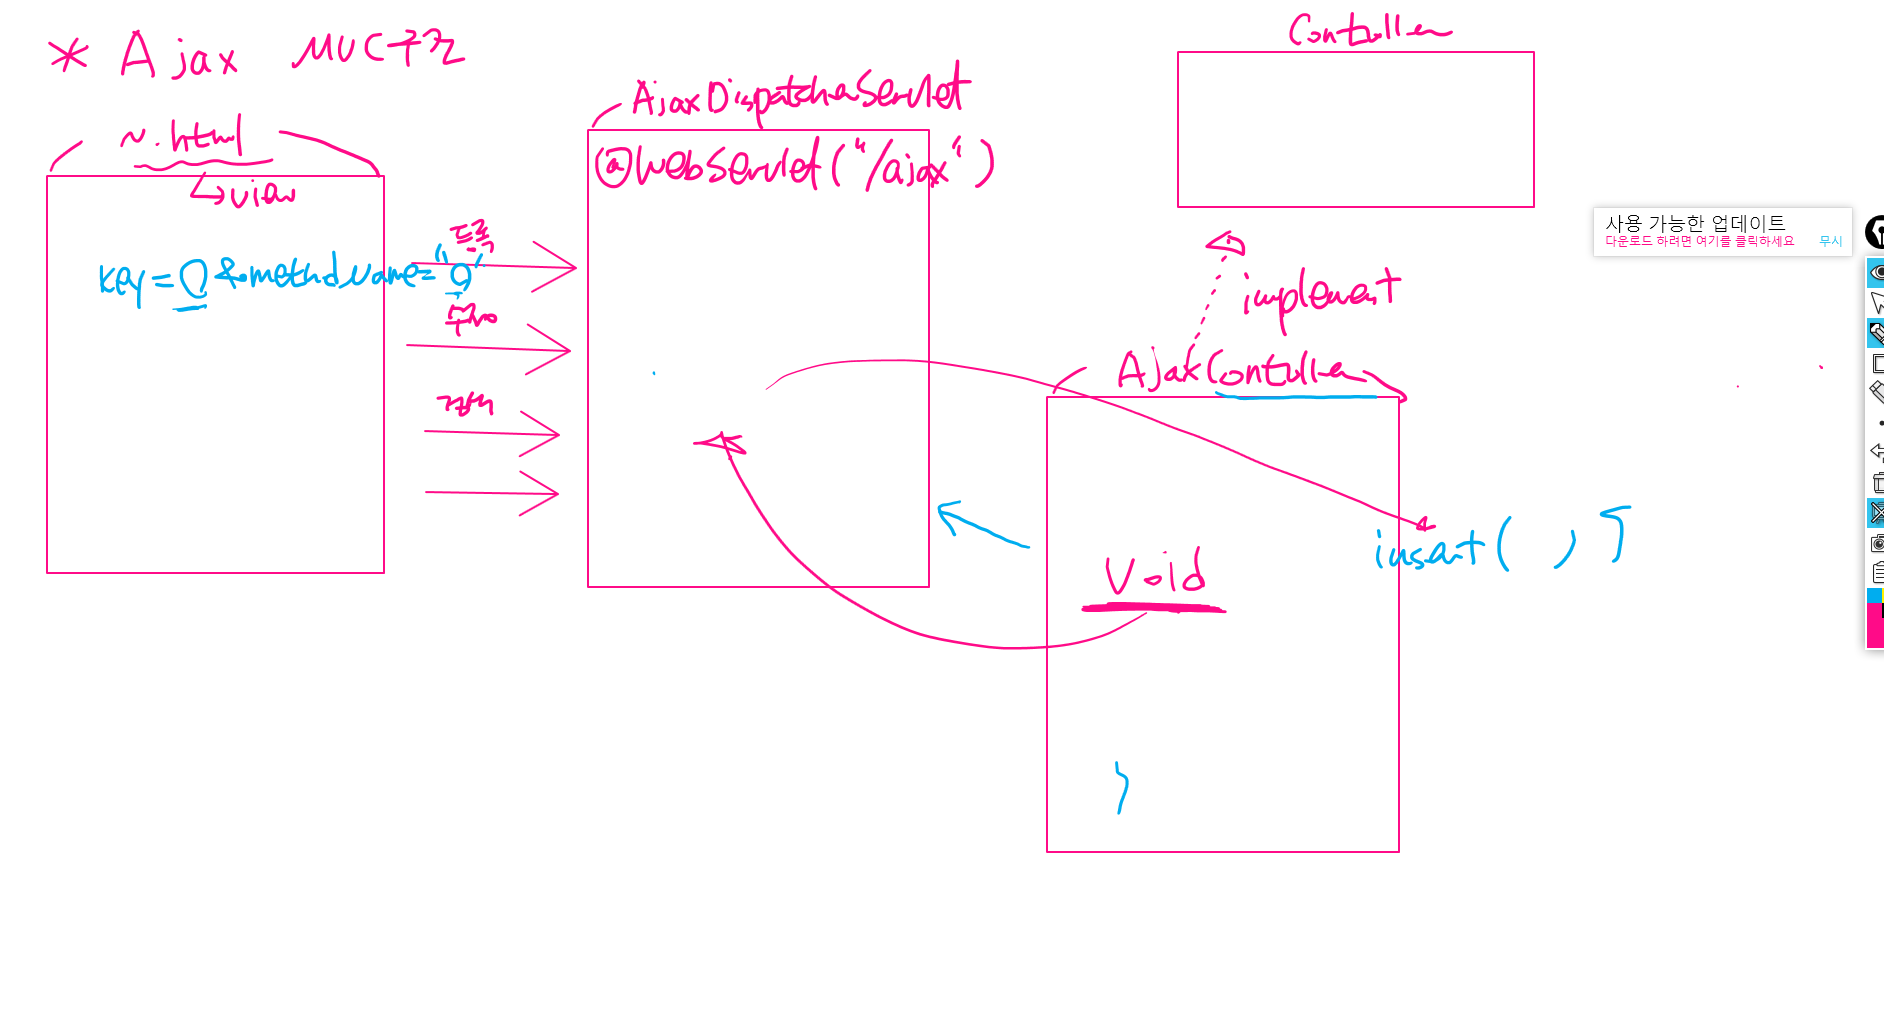 * Ajax MVC구조
~.html
↳view
key=O&methodName="O"
등록
수정
검색
AjaxDispatcherServlet
@WebServlet("/ajax")
Controller
implement
AjaxController
Void
insert( , )
}
사용 가능한 업데이트
다운로드 하려면 여기를 클릭하세요 무시